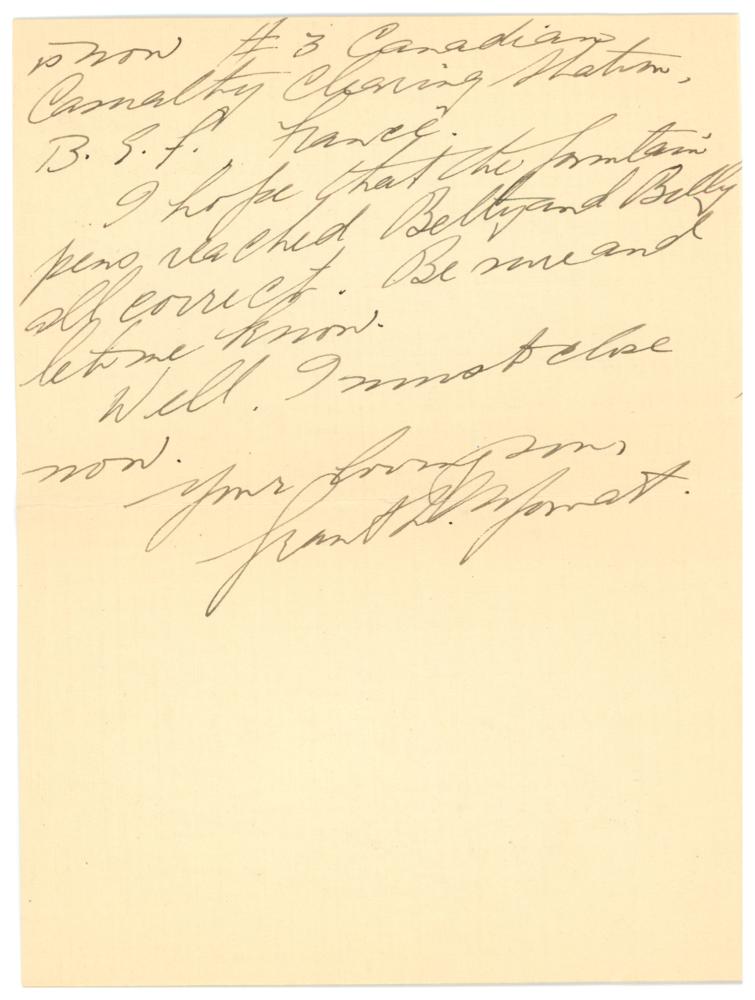 is now # 3 Canadian
Casualty Clearing Station,
B. E. F. France".
I hope that the fountain
pens reached Betty and Billy
all correct. Be sure and
let me know.
Well, I must close
now.
Your loving son,
Grant D. Mowat.